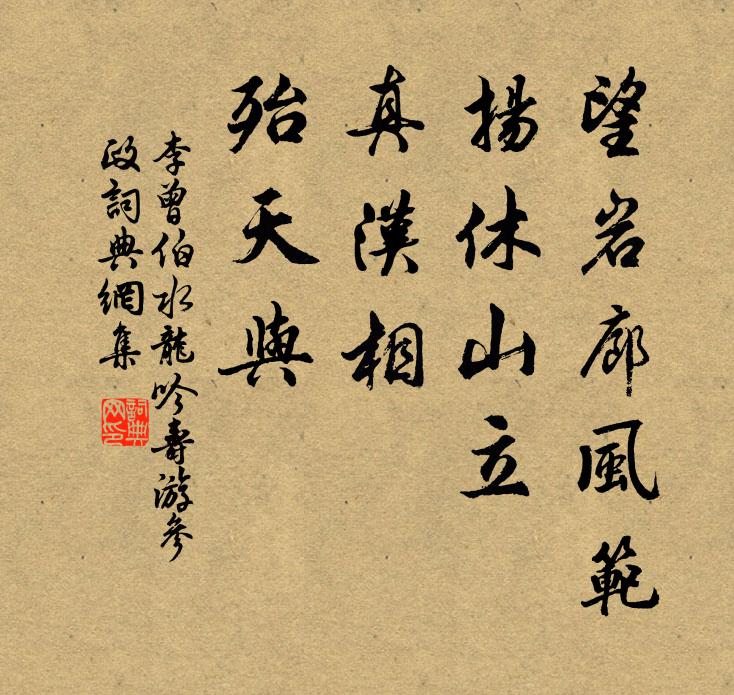 望岩廊風範
揚休山立
真漢相
殆天與
李曾伯水龍吟壽游參
政詞典網集
詞典
网印